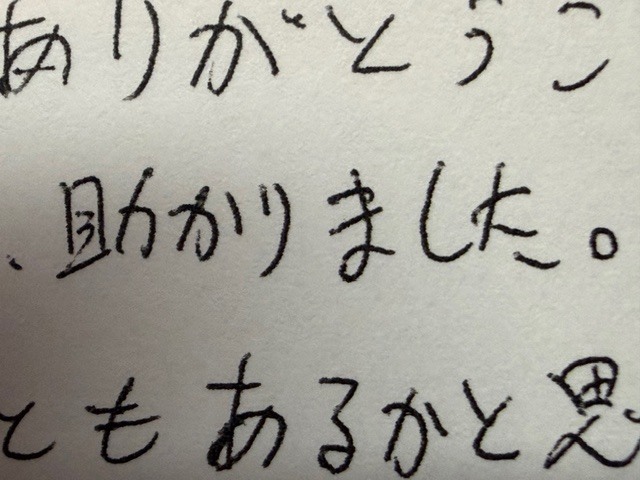 ありがとうこ
、助かりました。
ともあるかと思